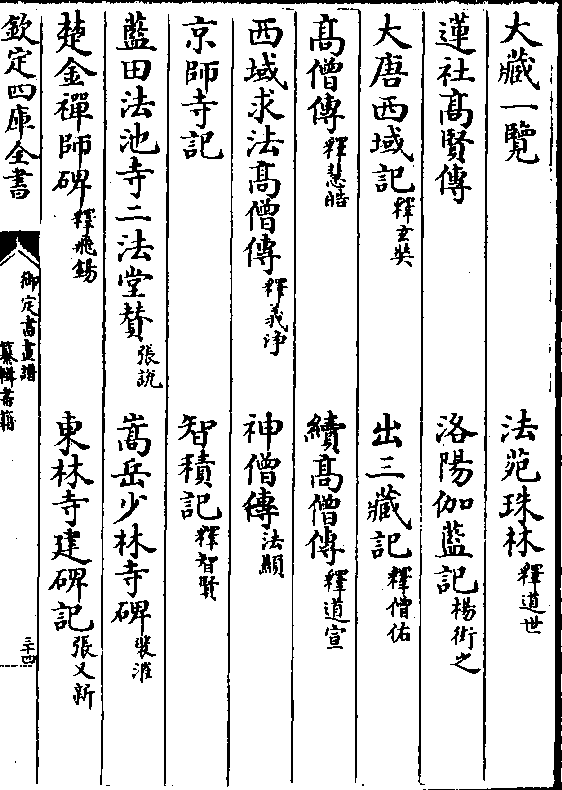 大藏一覽　法苑珠林釋道世
蓮社髙賢傳　洛陽伽藍記楊衒之
大唐西域記釋玄奘　出三藏記釋僧佑
髙僧傳釋慧皓　續髙僧傳釋道宣
西域求法髙僧傳釋義净　神僧傳法顯
京師寺記　智積記釋智賢
藍田法池寺二法堂賛張說　嵩岳少林寺碑裴漼
楚金禪師碑釋飛錫　東林寺建碑記張又新
欽定四庫全書　御定書畫譜　纂輯書籍　三十四